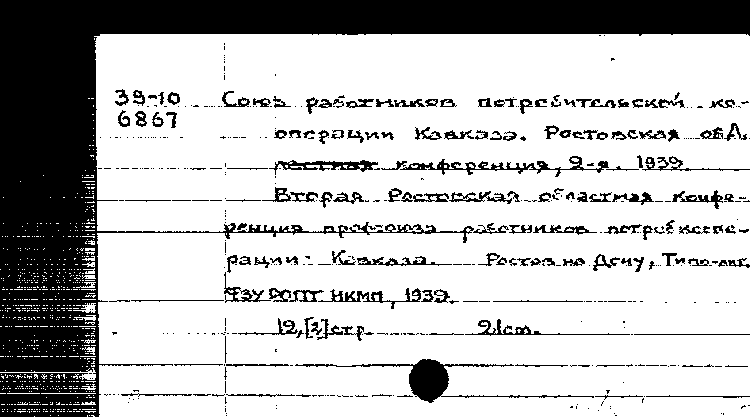 39-10 Союз работников потребительской ко-
6867
операции Кавказа. Ростовская обл.
конференция, 2-я. 1939.
Вторая Ростовская областная конфе-
ренция профсоюза работников потребкоопе-
рации Кавказа. Ростов на Дону, Типо-лит.
ФЗУ РОПТ НКМП, 1939.
12,[2]стр. 21cm.